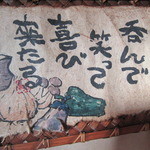 呑んで
笑って
喜び
来たる